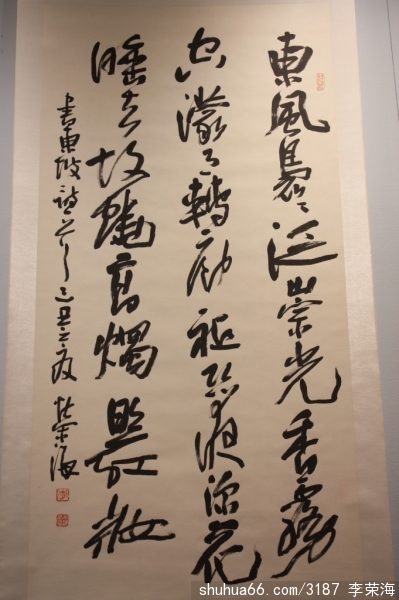 東風裊〻泛崇光香霧
空濛月轉廊祇恐夜深花
睡去故燒高燭照紅妝
書東坡詩 己丑之夏 榮海
shuhua66.com/3187 李荣海